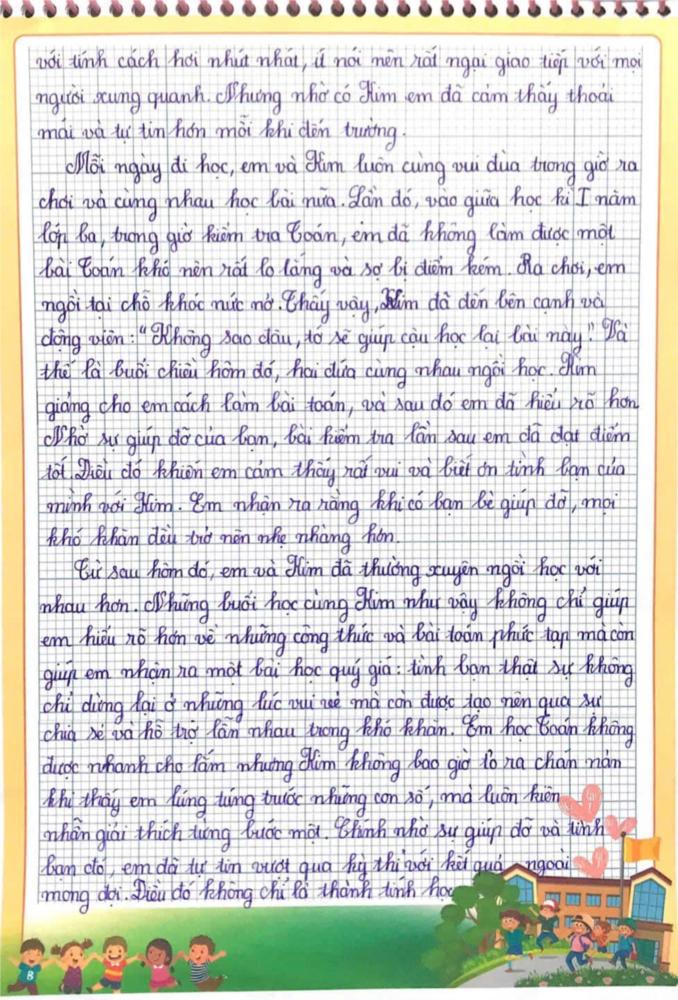 với tính cách hơi nhút nhát, ít nói nên rất ngại giao tiếp với mọi
người xung quanh. Nhưng nhờ có Kim em đã cảm thấy thoải
mái và tự tin hơn mỗi khi đến trường.
Mỗi ngày đi học, em và Kim luôn cùng vui đùa trong giờ ra
chơi và cùng nhau học bài nữa. Lần đó, vào giữa học kì I năm
lớp ba, trong giờ kiểm tra Toán, em đã không làm được một
bài Toán khó nên rất lo lắng và sợ bị điểm kém. Ra chơi, em
ngồi tại chỗ khóc nức nở. Thấy vậy, Kim đã đến bên cạnh và
động viên: "Không sao đâu, tớ sẽ giúp cậu học lại bài này!" Và
thế là buổi chiều hôm đó, hai đứa cùng nhau ngồi học. Kim
giảng cho em cách làm bài toán, và sau đó em đã hiểu rõ hơn
Nhờ sự giúp đỡ của bạn, bài kiểm tra lần sau em đã đạt điểm
tốt. Điều đó khiến em cảm thấy rất vui và biết ơn tình bạn của
mình với Kim. Em nhận ra rằng khi có bạn bè giúp đỡ, mọi
khó khăn đều trở nên nhẹ nhàng hơn.
Từ sau hôm đó, em và Kim đã thường xuyên ngồi học với
nhau hơn. Những buổi học cùng Kim như vậy không chỉ giúp
em hiểu rõ hơn về những công thức và bài toán phức tạp mà còn
giúp em nhận ra một bài học quý giá: tình bạn thật sự không
chỉ dừng lại ở những lúc vui vẻ mà còn được tạo nên qua sự
chia sẻ và hỗ trợ lẫn nhau trong khó khăn. Em học Toán không
được nhanh cho lắm nhưng Kim không bao giờ tỏ ra chán nản
khi thấy em lúng túng trước những con số, mà luôn kiên
nhẫn giải thích từng bước một. Chính nhờ sự giúp đỡ và tình
bạn đó, em đã tự tin vượt qua kỳ thi với kết quả ngoài
mong đợi. Điều đó không chỉ là thành tích học
B